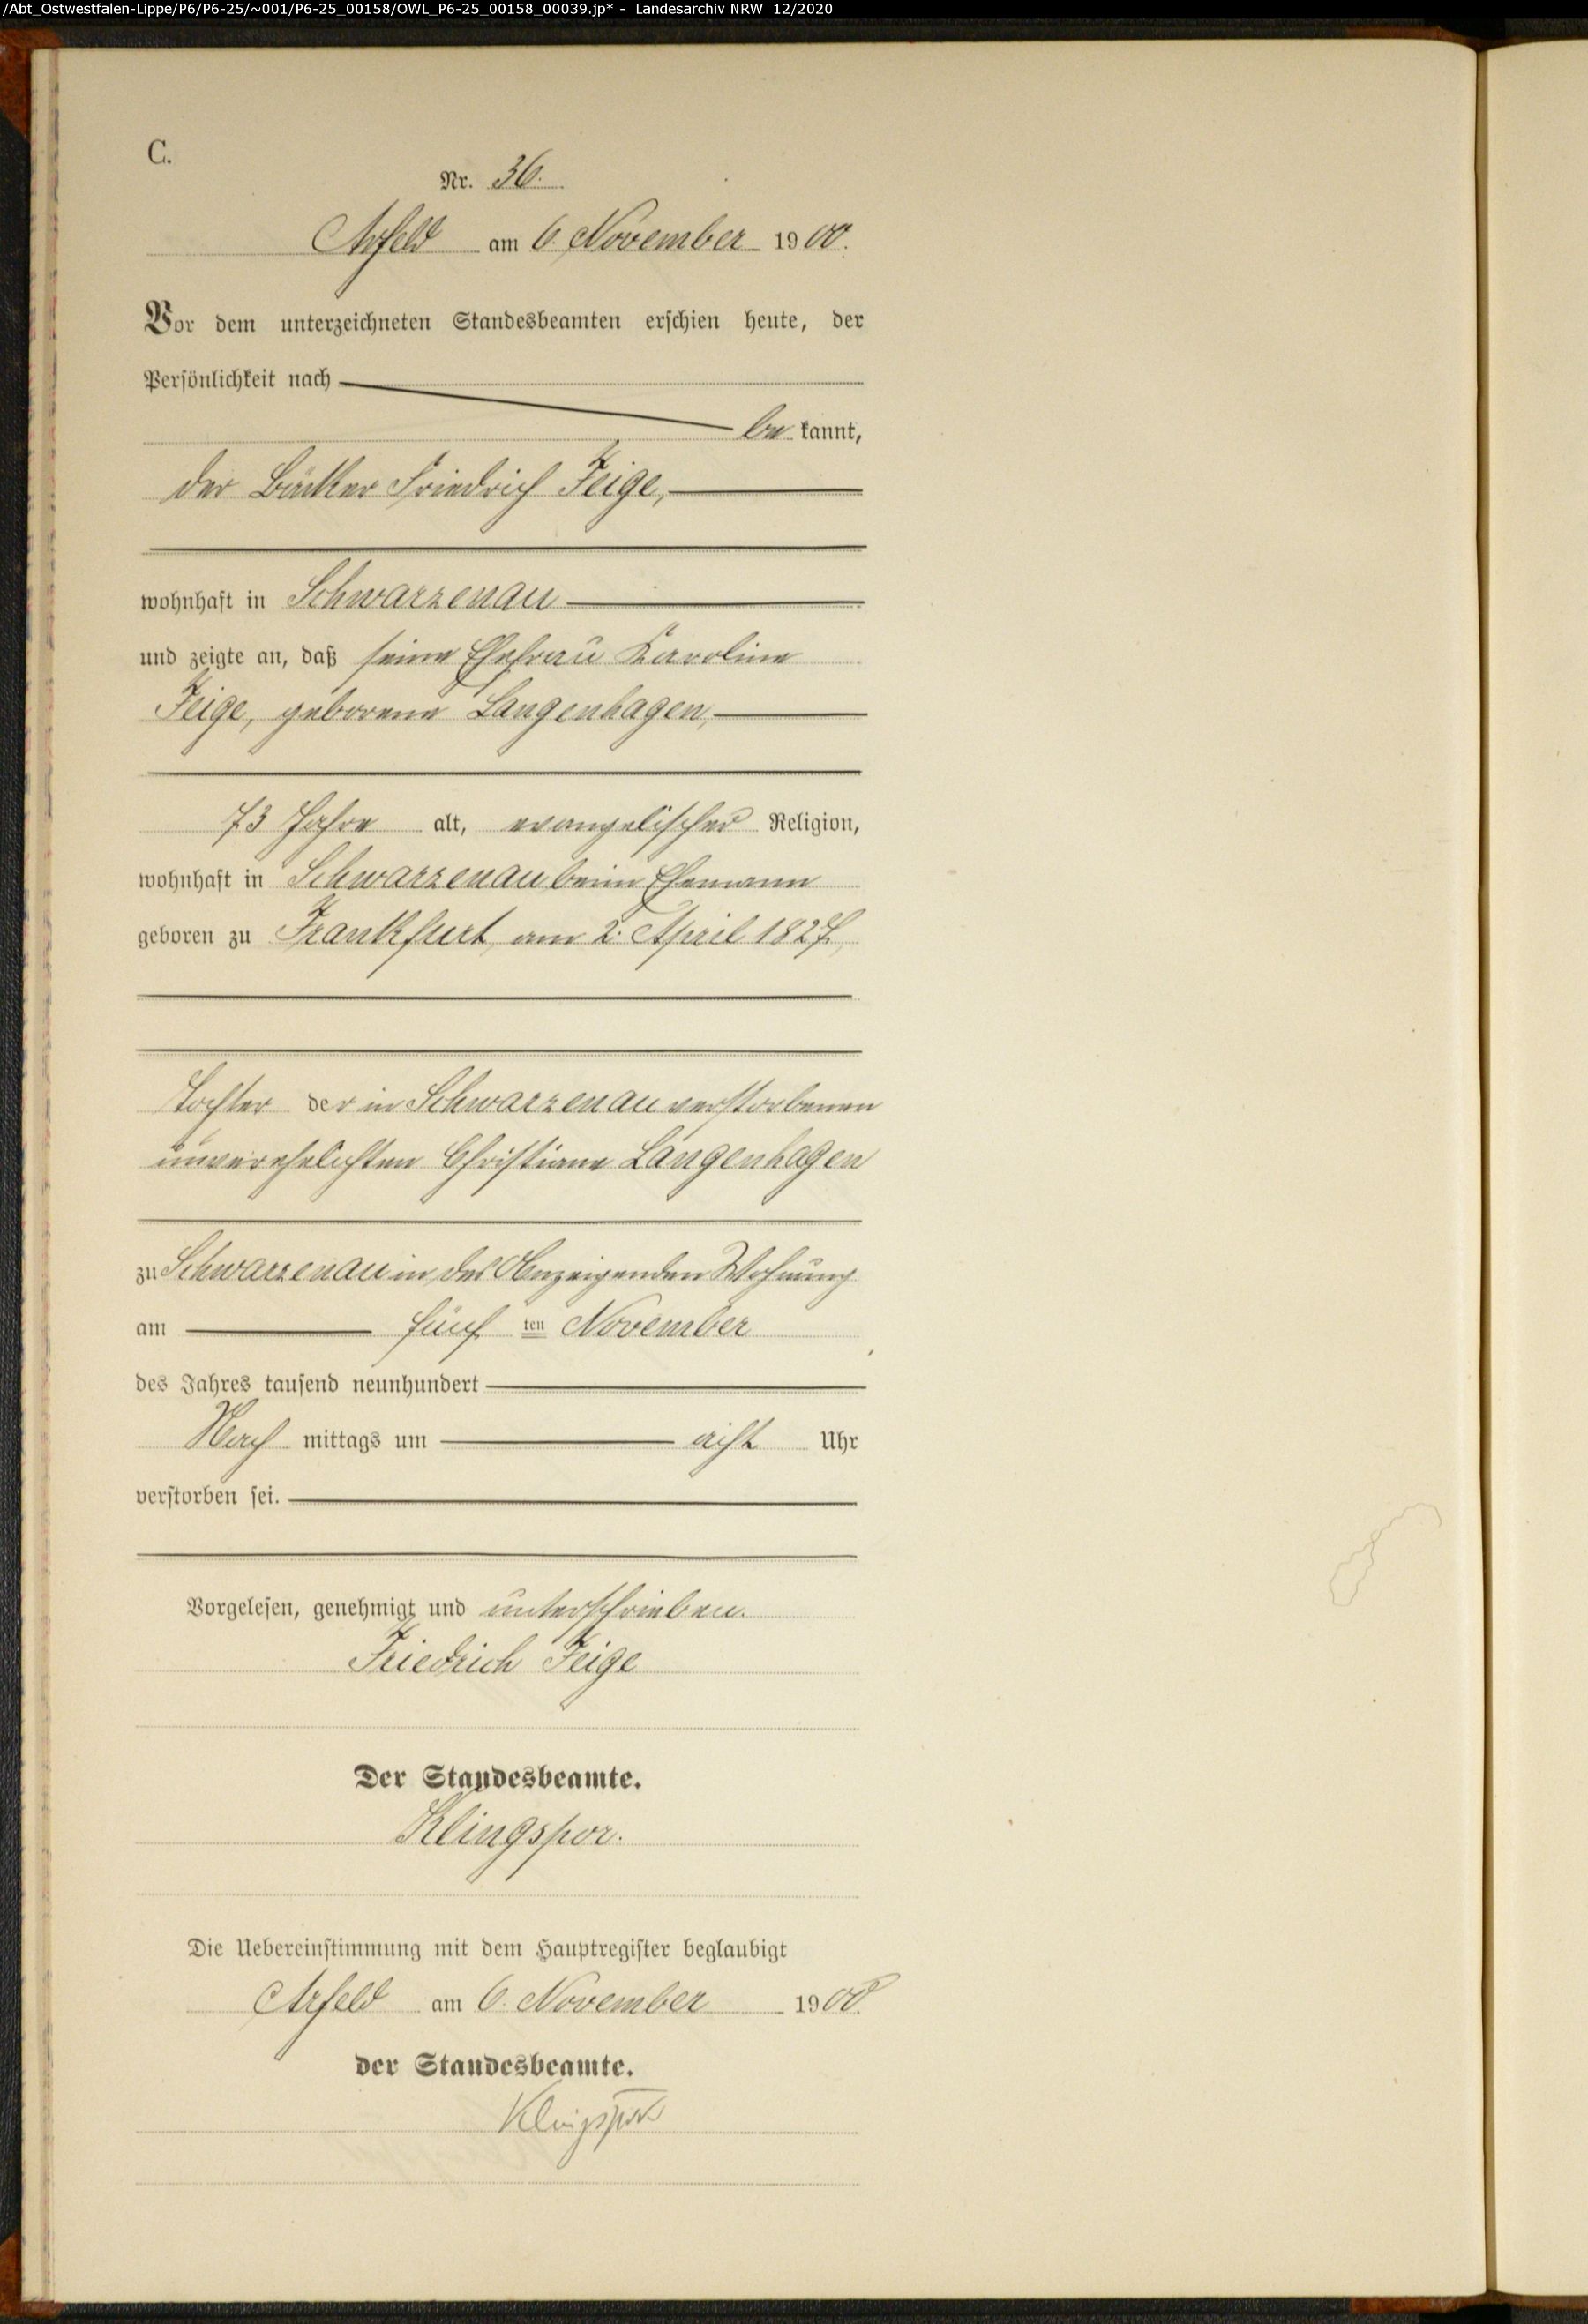 /Abt_Ostwestfalen-Lippe/P6/P6-25/~001/P6-25_00158/OWL_P6-25_00158_00039.jp* - Landesarchiv NRW 12/2020
C.
Nr. 36.
Arfeld am 6. November 1900.
Vor dem unterzeichneten Standesbeamten erschien heute, der
Persönlichkeit nach
be kannt,
der Bäcker Friedrich Feige,
wohnhaft in Schwarzenau
und zeigte an, daß seine Ehefrau Karoline
Feige, geborene Langenhagen,
73 Jahre alt, evangelischer Religion,
wohnhaft in Schwarzenau beim Ehemann
geboren zu Frankfurt, am 2. April 1827,
Tochter der in Schwarzenau verstorbenen
unverehelichten Christiane Langenhagen
zu Schwarzenau in des Anzeigenden Wohnung
am fünf ten November
des Jahres tausend neunhundert
Nach mittags um acht Uhr
verstorben sei.
Vorgelesen, genehmigt und unterschrieben.
Friedrich Feige
Der Standesbeamte.
Klingspor.
Die Uebereinstimmung mit dem Hauptregister beglaubigt
Arfeld am 6. November 1900.
der Standesbeamte.
Klingspor